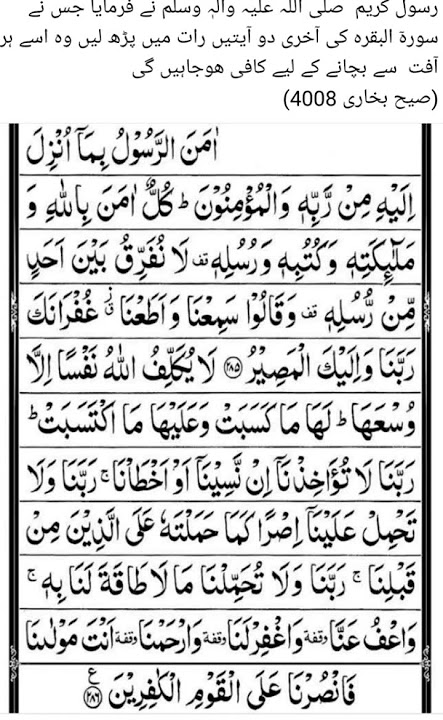 رسول کریم صلی اللہ علیہ والہٖ وسلم نے فرمایا جس نے
سورۃ البقرہ کی آخری دو آیتیں رات میں پڑھ لیں وہ اسے ہر
آفت سے بچانے کے لیے کافی ھوجاہیں گی
(صیح بخاری 4008)
اٰمَنَ الرَّسُوْلُ بِمَاۤ اُنْزِلَ
اِلَیْهِ مِنْ رَّبِّهٖ وَالْمُؤْمِنُوْنَ ؕ كُلٌّ اٰمَنَ بِاللّٰهِ وَ
مَلٰٓئِكَتِهٖ وَكُتُبِهٖ وَرُسُلِهٖ قف لَا نُفَرِّقُ بَیْنَ اَحَدٍ
مِّنْ رُّسُلِهٖ قف وَقَالُوْا سَمِعْنَا وَاَطَعْنَا ۗ غُفْرَانَكَ
رَبَّنَا وَاِلَیْكَ الْمَصِیْرُ ﴿۲۸۵﴾ لَا یُكَلِّفُ اللّٰهُ نَفْسًا اِلَّا
وُسْعَهَا ؕ لَهَا مَا كَسَبَتْ وَعَلَیْهَا مَا اكْتَسَبَتْ ؕ
رَبَّنَا لَا تُؤَاخِذْنَاۤ اِنْ نَّسِیْنَاۤ اَوْ اَخْطَاْنَا ۚ رَبَّنَا وَلَا
تَحْمِلْ عَلَیْنَاۤ اِصْرًا كَمَا حَمَلْتَهٗ عَلَی الَّذِیْنَ مِنْ
قَبْلِنَا ۚ رَبَّنَا وَلَا تُحَمِّلْنَا مَا لَا طَاقَةَ لَنَا بِهٖ ۚ
وَاعْفُ عَنَّا وقفة وَاغْفِرْ لَنَا وقفة وَارْحَمْنَا وقفة اَنْتَ مَوْلٰىنَا
فَانْصُرْنَا عَلَی الْقَوْمِ الْكٰفِرِیْنَ ع ﴿۲۸۶﴾